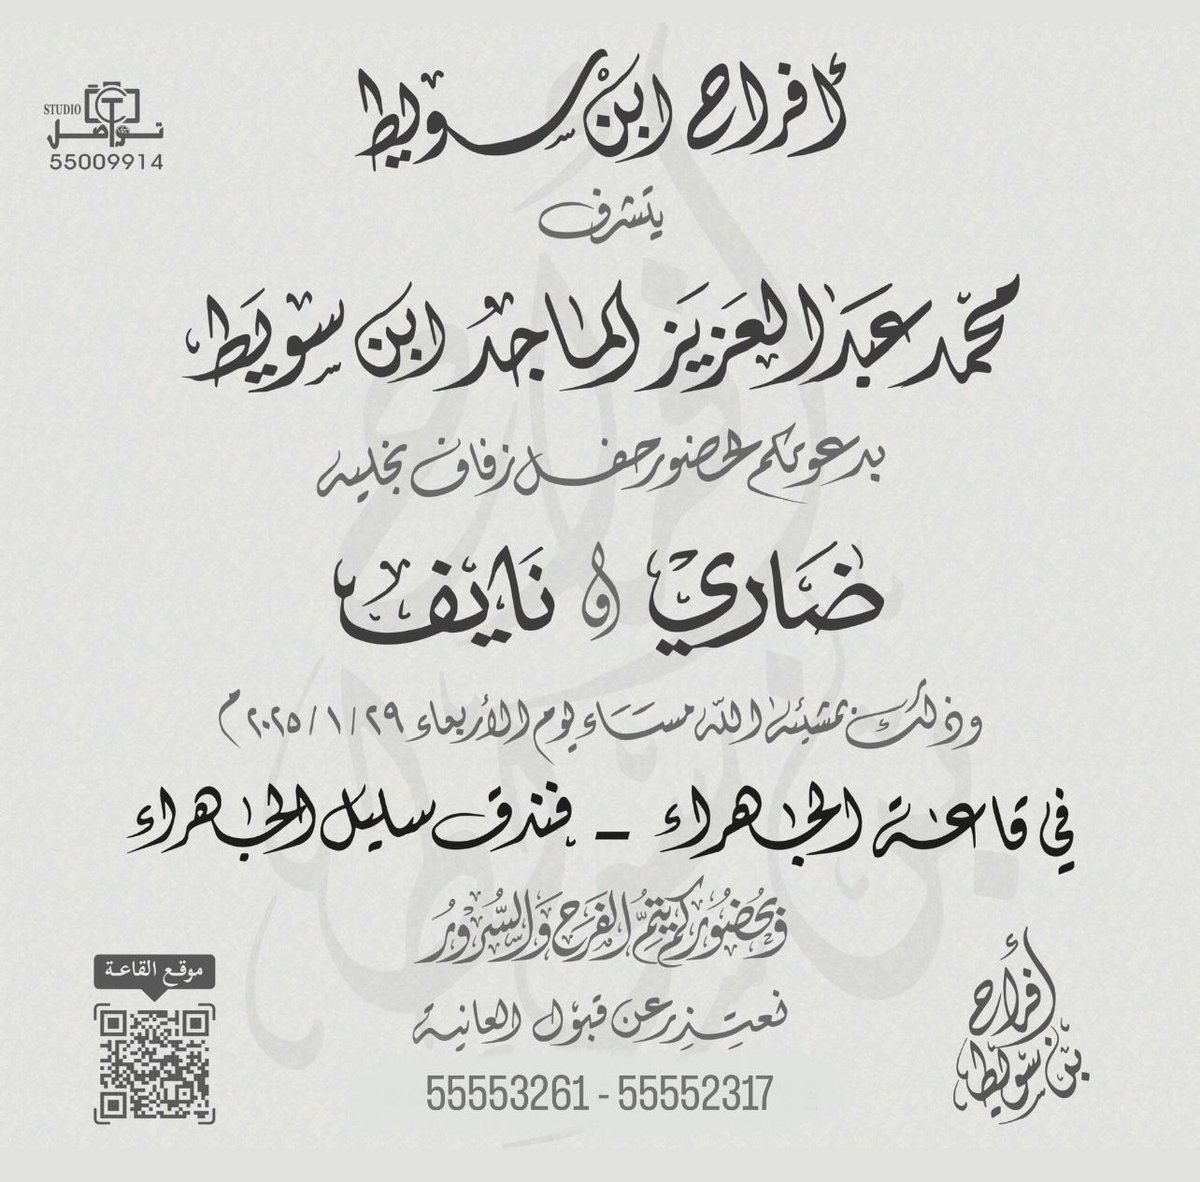 أفراح ابن سويط
STUDIO
تواصل
55009914
يتشرف
محمد عبدالعزيز الماجد ابن سويط
بدعوتكم لحضور حفل زفاف نجليه
ضاري و نايف
وذلك بمشيئة الله مساء يوم الأربعاء ٢٠٢٥/١/٢٩م
في قاعة الجهراء - فندق سليل الجهراء
وَبحُضُوركم يَتِمُّ الفَرَحُ وَالسُّرُورُ
نعتذر عن قبول العانية
55553261 - 55552317
موقع القاعة
أفراح
بن سويط